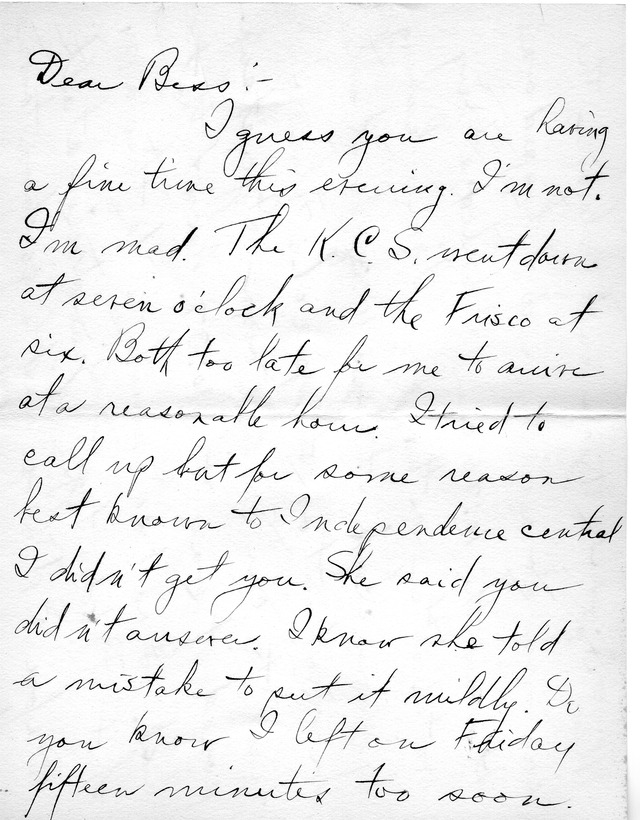 Dear Bess:-
I guess you are having
a fine time this evening. I'm not.
I'm mad. The K.C.S. went down
at seven o'clock and the Frisco at
six. Both too late for me to arrive
at a reasonable hour. I tried to
call up but for some reason
best known to Independence central
I didn't get you. She said you
didn't answer. I know she told
a mistake to put it mildly. Do
you know I left on Friday
fifteen minutes too soon.